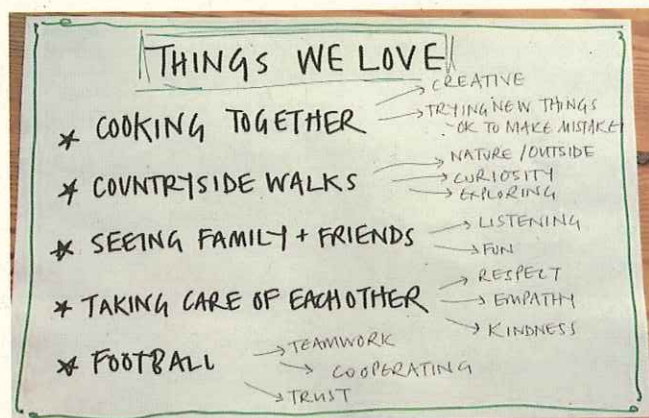 THINGS WE LOVE
* COOKING TOGETHER
→ CREATIVE
→ TRYING NEW THINGS
- OK TO MAKE MISTAKE
* COUNTRYSIDE WALKS
→ NATURE / OUTSIDE
→ CURIOSITY
→ EXPLORING
* SEEING FAMILY + FRIENDS
→ LISTENING
→ FUN
* TAKING CARE OF EACHOTHER
→ RESPECT
→ EMPATHY
→ KINDNESS
* FOOTBALL
→ TEAMWORK
→ COOPERATING
→ TRUST